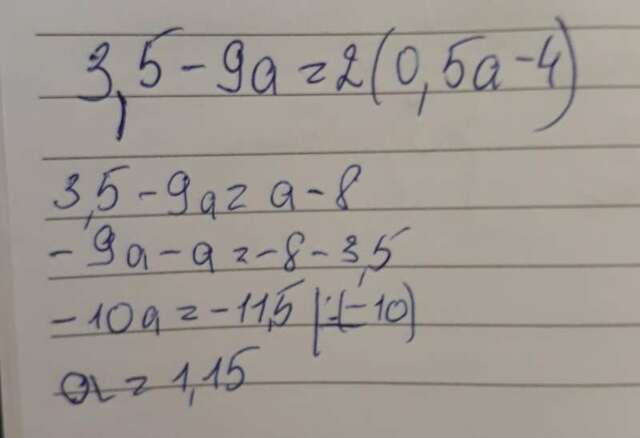 3,5-9a=2(0,5a-4)
3,5-9a=a-8
-9a-a=-8-3,5
-10a=-11,5 |:(-10)
a=1,15